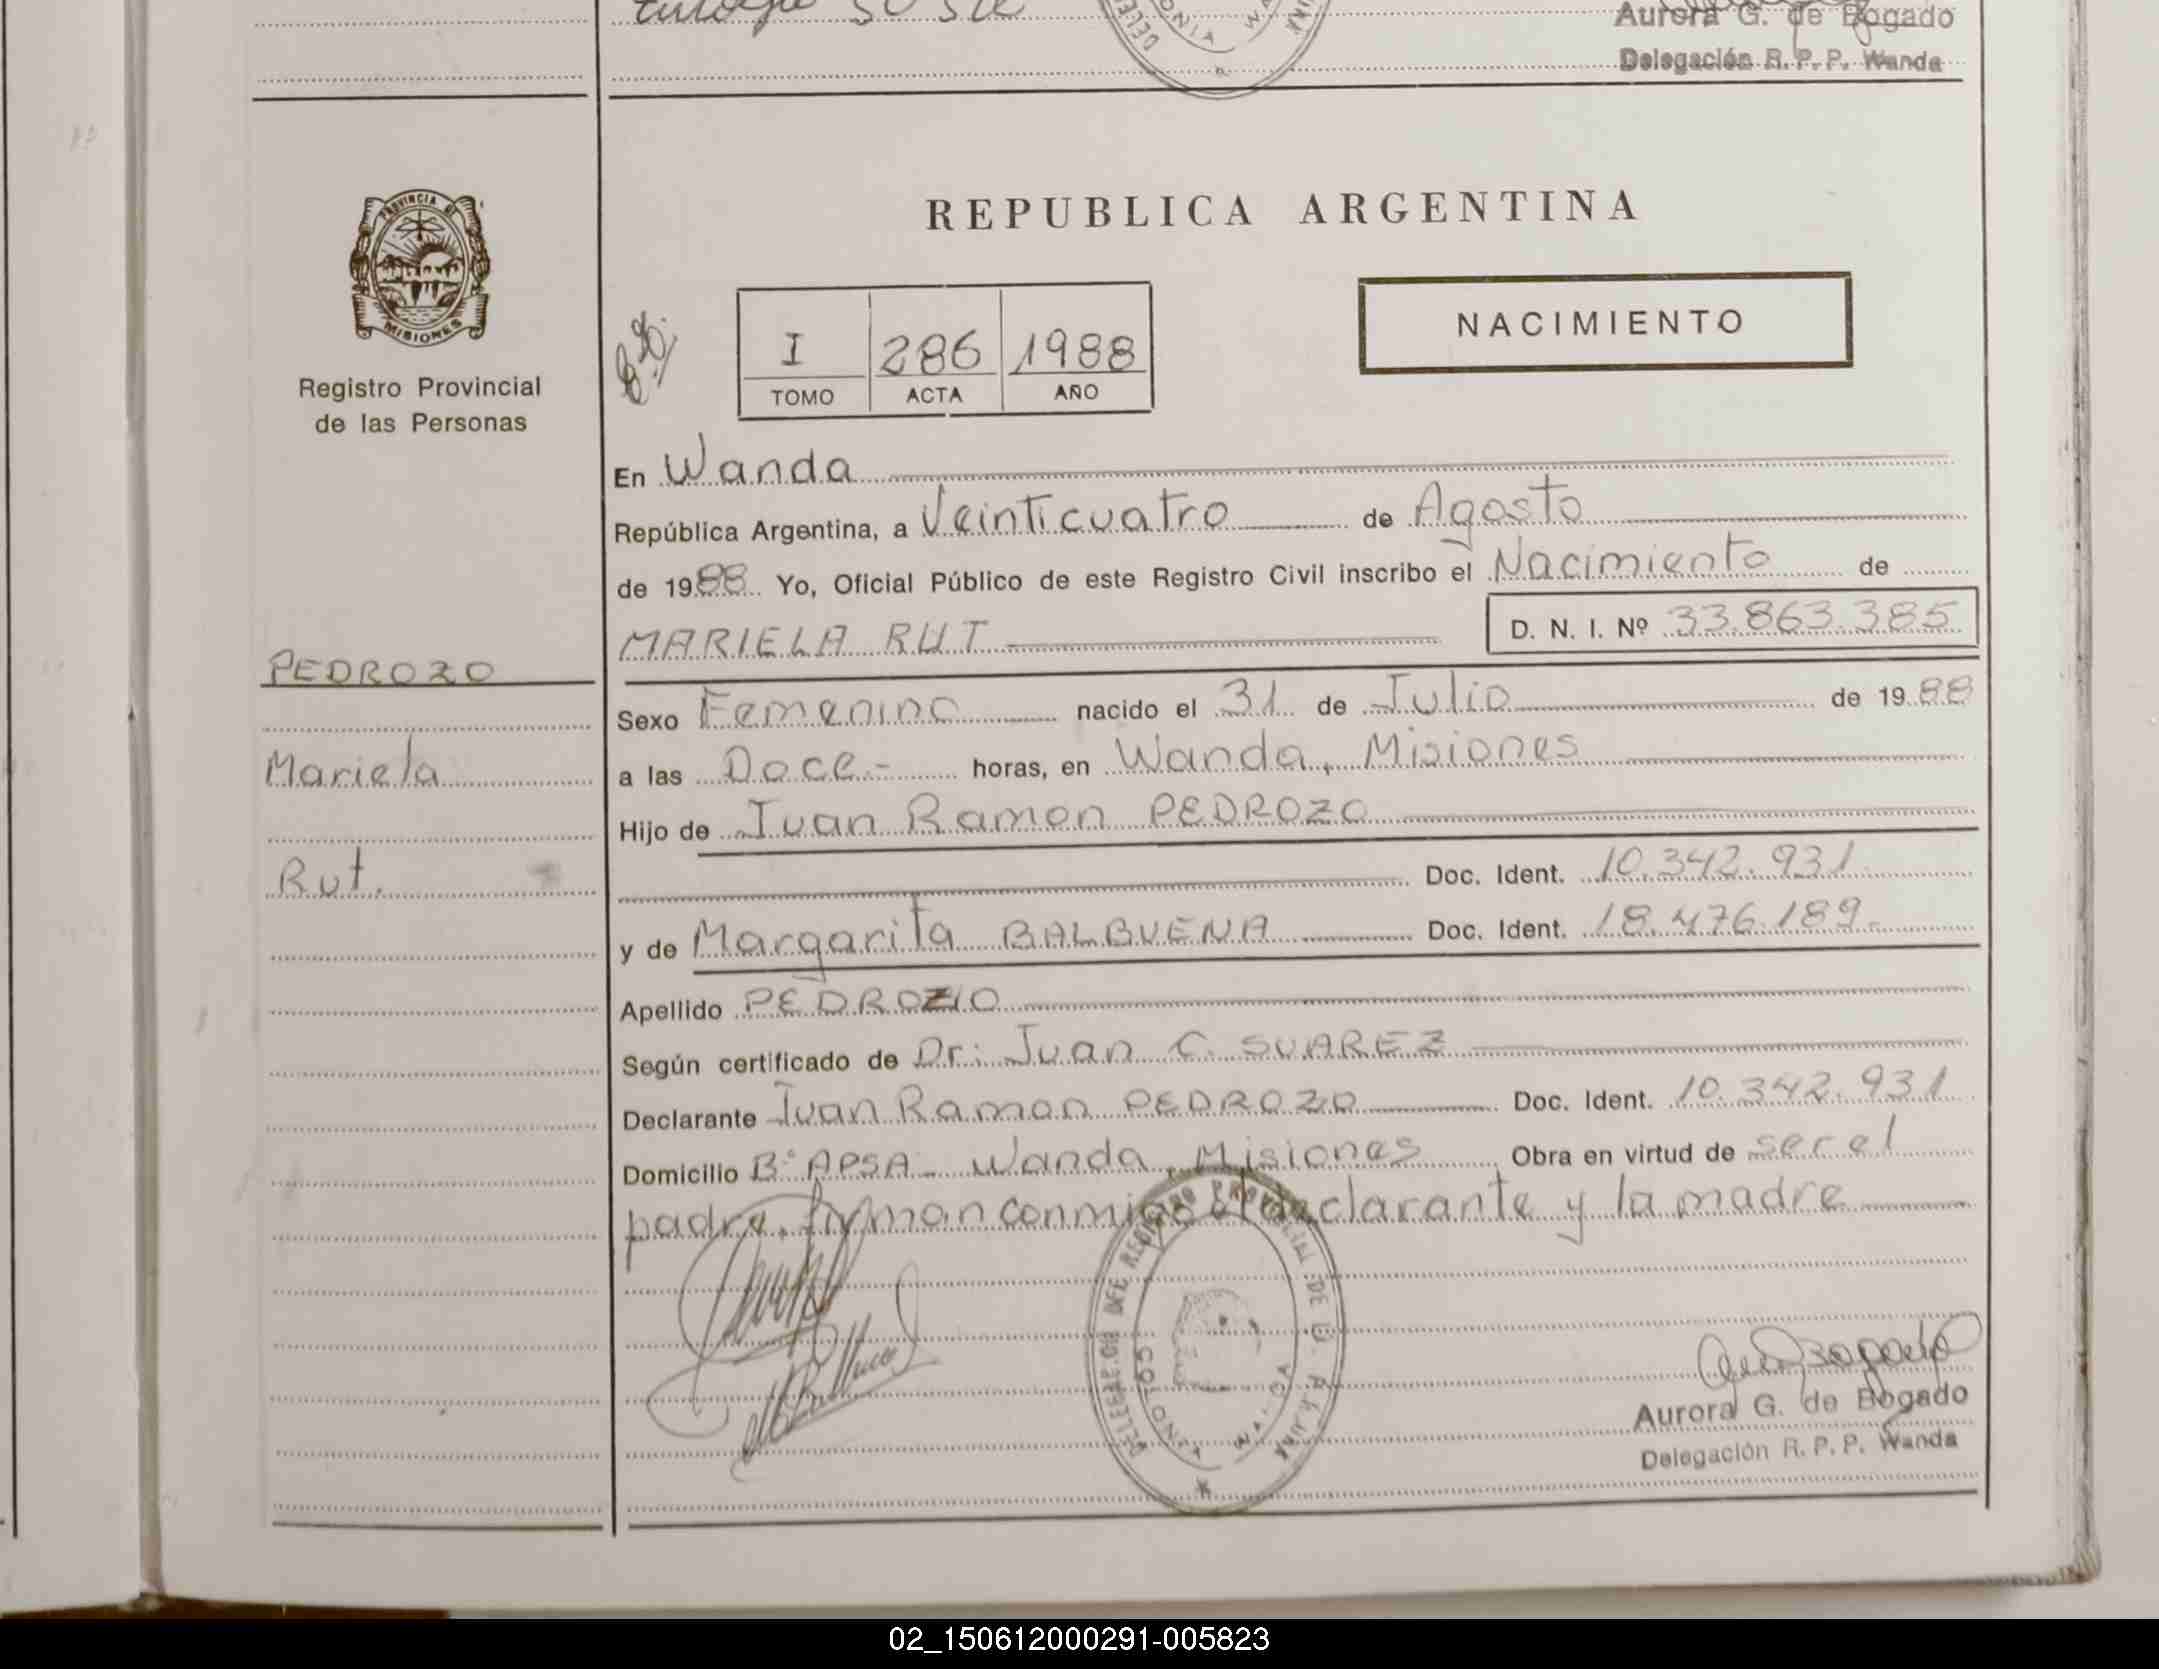 Aurora G. de Bogado
Delegación R. P. P. Wanda
PROVINCIA DE
MISIONES
Registro Provincial
de las Personas
PEDROZO
Mariela
Rut.
REPUBLICA ARGENTINA
I 286 1988
TOMO ACTA AÑO
NACIMIENTO
En Wanda
República Argentina, a Veinticuatro de Agosto
de 1988 Yo, Oficial Público de este Registro Civil inscribo el Nacimiento de
MARIELA RUT D. N. I. Nº 33.863.385
Sexo Femenino nacido el 31 de Julio de 1988
a las Doce.- horas, en Wanda, Misiones
Hijo de Juan Ramon PEDROZO
Doc. Ident. 10.342.931
y de Margarita BALBUENA Doc. Ident. 18.476.189.-
Apellido PEDROZO
Según certificado de Dr: Juan C. SUAREZ
Declarante Juan Ramon PEDROZO Doc. Ident. 10.342.931
Domicilio Bº APSA - Wanda, Misiones Obra en virtud de ser el
padre, firman conmigo el declarante y la madre
Aurora G. de Bogado
Delegación R. P. P. Wanda
02_150612000291-005823